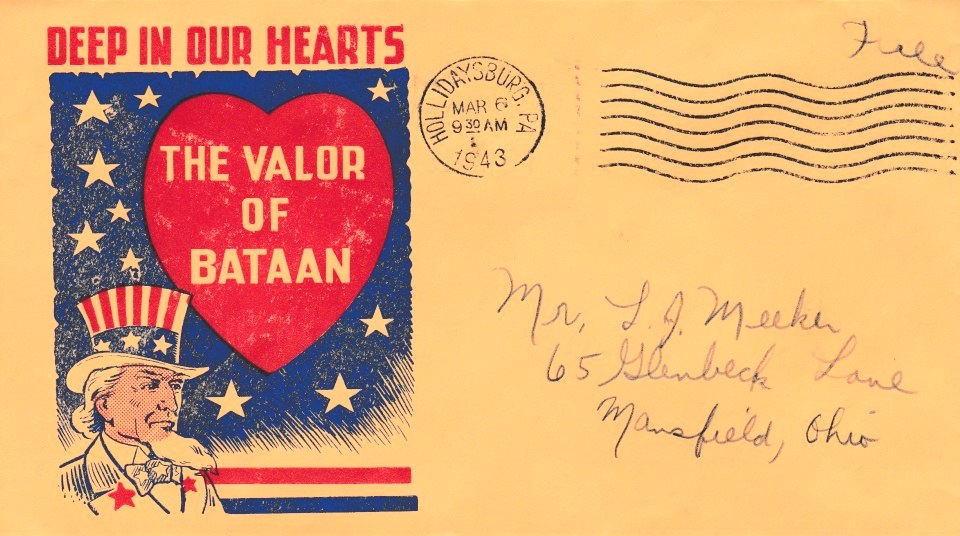 DEEP IN OUR HEARTS
THE VALOR
OF
BATAAN
HOLLIDAYSBURG, PA
MAR 6
9 30 AM
1943
Free
Mr. L. J. Meeker
65 Glenbeck Lane
Mansfield, Ohio